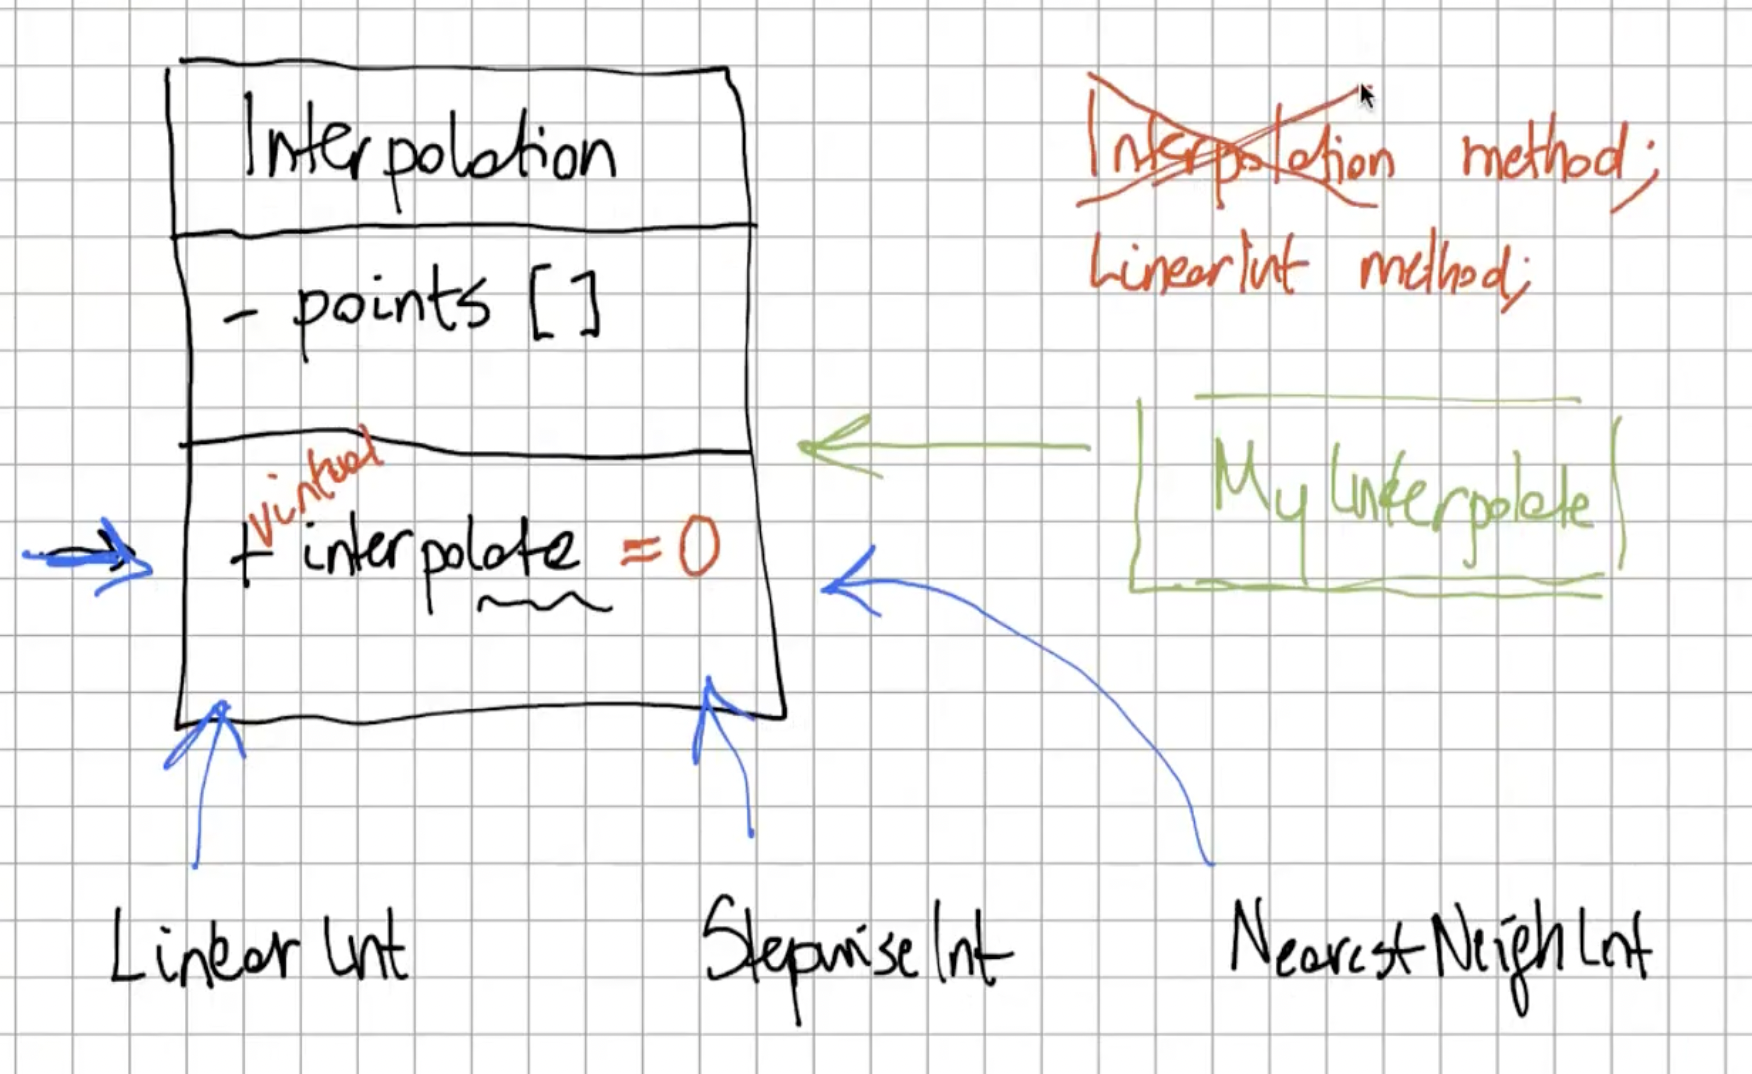 Interpolation
- points []
virtual
+ interpolate = 0
Interpolation method;
LinearInt method;
MyInterpolate
LinearInt
StepwiseInt
NearestNeighInt